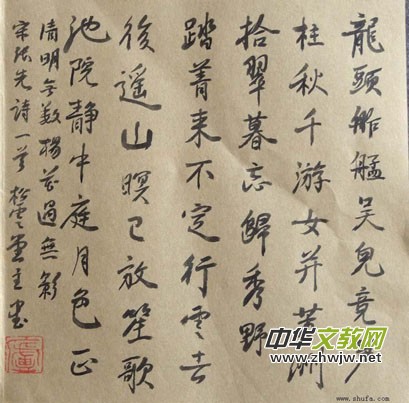 龍頭舴艋吳兒竞笋
柱秋千游女并芳洲
拾翠暮忘歸秀野
踏菁来不定行雲去
後遥山暝已放笙歌
池院静中庭月色正
清明無数楊花過無影
宋张先詩一首 松雲堂主書
中华文教网
www.zhwjw.net
www.shufa.com